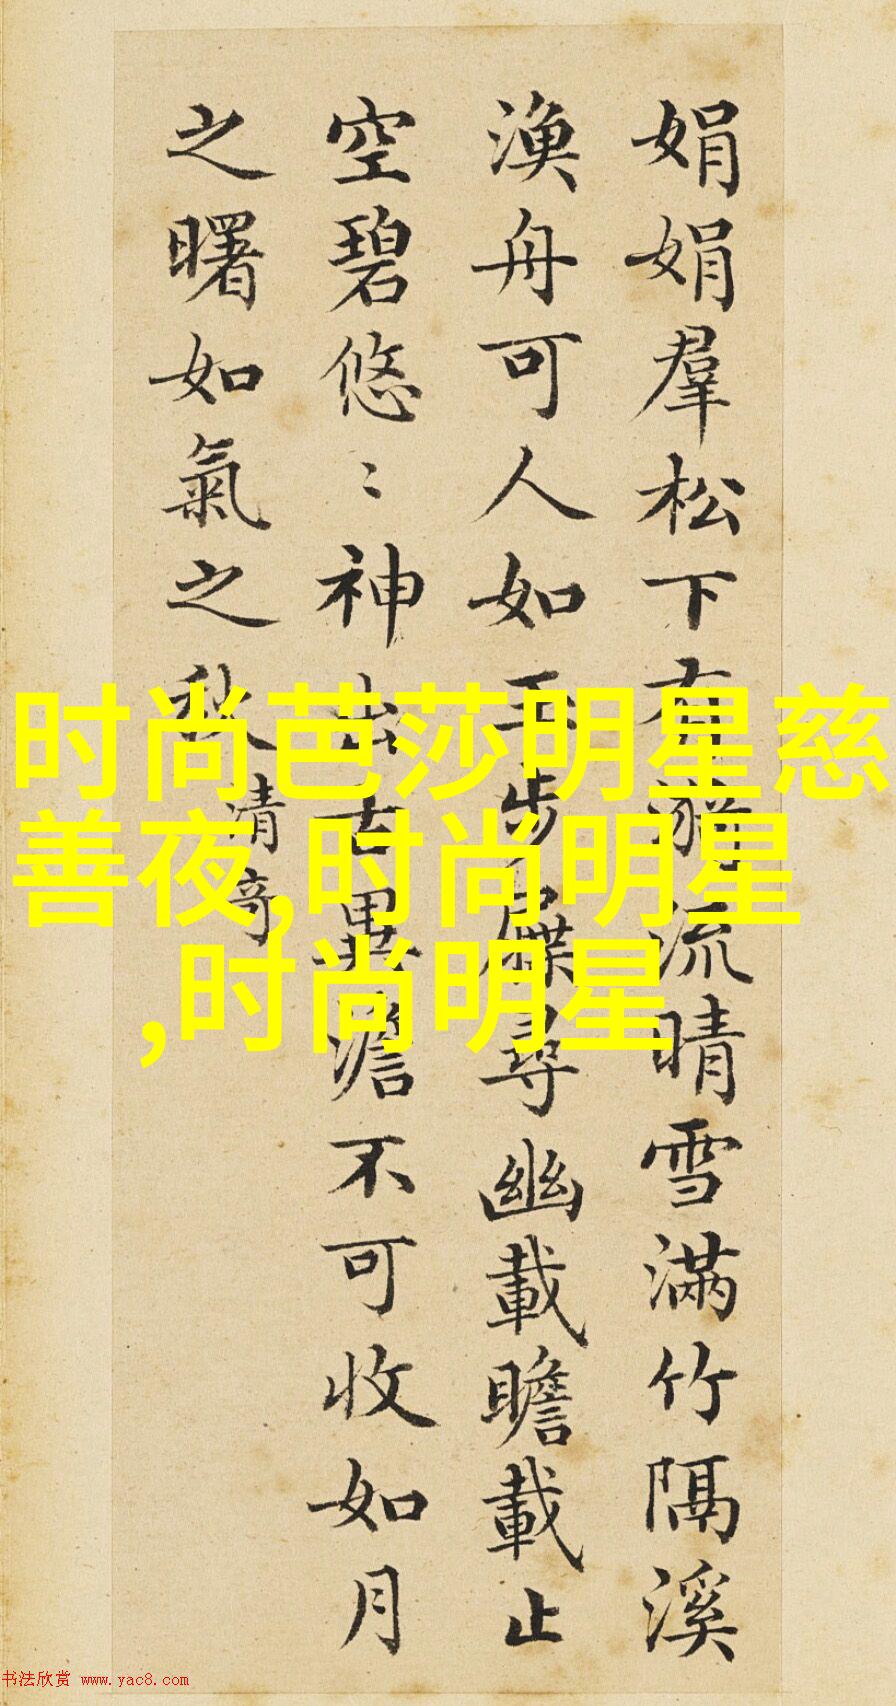 娟娟羣松下有漪流晴雪滿竹隔溪
漁舟可人如玉步屧尋幽載瞻載止
空碧悠〻神出古異澹不可收如月
之曙如氣之秋
清奇
时尚芭莎明星慈
善夜,时尚明星
,时尚明星
书法欣赏 www.yac8.com